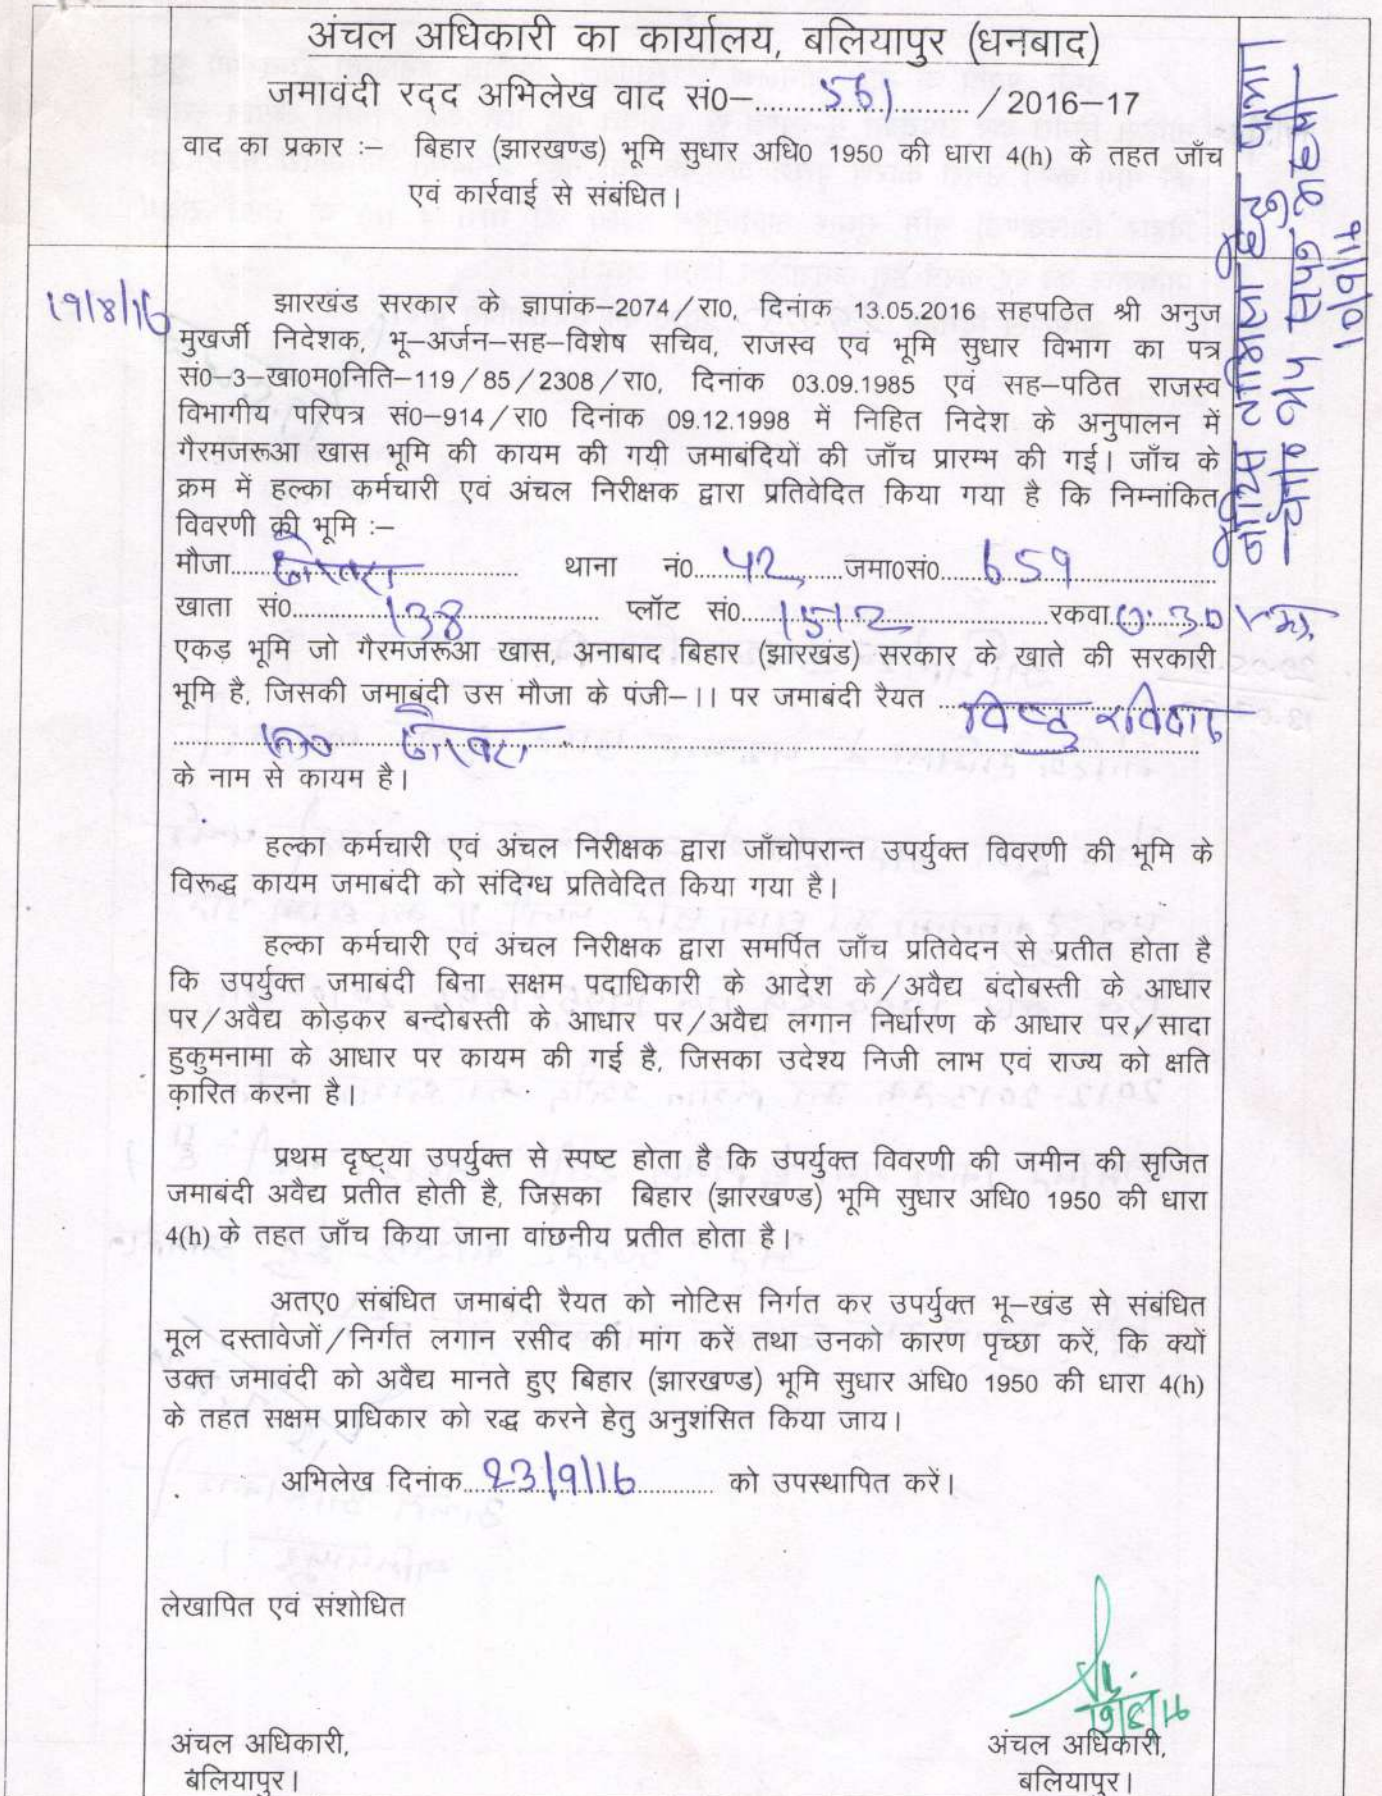 अंचल अधिकारी का कार्यालय, बलियापुर (धनबाद)
जमावंदी रद्द अभिलेख वाद सं0–....561..../2016–17
वाद का प्रकार :– बिहार (झारखण्ड) भूमि सुधार अधि0 1950 की धारा 4(h) के तहत जाँच
एवं कार्रवाई से संबंधित।
नोटिस तामिला हेतु
10/9/16
19/8/16
झारखंड सरकार के ज्ञापांक–2074/रा0, दिनांक 13.05.2016 सहपठित श्री अनुज
मुखर्जी निदेशक, भू–अर्जन–सह–विशेष सचिव, राजस्व एवं भूमि सुधार विभाग का पत्र
सं0–3–खा0म0निति–119/85/2308/रा0, दिनांक 03.09.1985 एवं सह–पठित राजस्व
विभागीय परिपत्र सं0–914/रा0 दिनांक 09.12.1998 में निहित निदेश के अनुपालन में
गैरमजरूआ खास भूमि की कायम की गयी जमाबंदियों की जाँच प्रारम्भ की गई। जाँच के
क्रम में हल्का कर्मचारी एवं अंचल निरीक्षक द्वारा प्रतिवेदित किया गया है कि निम्नांकित
विवरणी की भूमि :–
मौजा........ थाना नं0....42....जमा0सं0....659....
खाता सं0....138.... प्लॉट सं0....1512....रकवा..0.30
एकड़ भूमि जो गैरमजरूआ खास, अनाबाद बिहार (झारखंड) सरकार के खाते की सरकारी
भूमि है, जिसकी जमाबंदी उस मौजा के पंजी–।। पर जमाबंदी रैयत ....विष्टु रविदास
के नाम से कायम है।
हल्का कर्मचारी एवं अंचल निरीक्षक द्वारा जाँचोपरान्त उपर्युक्त विवरणी की भूमि के
विरूद्ध कायम जमाबंदी को संदिग्ध प्रतिवेदित किया गया है।
हल्का कर्मचारी एवं अंचल निरीक्षक द्वारा समर्पित जाँच प्रतिवेदन से प्रतीत होता है
कि उपर्युक्त जमाबंदी बिना सक्षम पदाधिकारी के आदेश के/अवैद्य बंदोबस्ती के आधार
पर/अवैद्य कोड़कर बन्दोबस्ती के आधार पर/अवैद्य लगान निर्धारण के आधार पर/सादा
हुकुमनामा के आधार पर कायम की गई है, जिसका उदेश्य निजी लाभ एवं राज्य को क्षति
कारित करना है।
प्रथम दृष्ट्या उपर्युक्त से स्पष्ट होता है कि उपर्युक्त विवरणी की जमीन की सृजित
जमाबंदी अवैद्य प्रतीत होती है, जिसका बिहार (झारखण्ड) भूमि सुधार अधि0 1950 की धारा
4(h) के तहत जाँच किया जाना वांछनीय प्रतीत होता है।
अतए0 संबंधित जमाबंदी रैयत को नोटिस निर्गत कर उपर्युक्त भू–खंड से संबंधित
मूल दस्तावेजों/निर्गत लगान रसीद की मांग करें तथा उनको कारण पृच्छा करें, कि क्यों
उक्त जमावंदी को अवैद्य मानते हुए बिहार (झारखण्ड) भूमि सुधार अधि0 1950 की धारा 4(h)
के तहत सक्षम प्राधिकार को रद्ध करने हेतु अनुशंसित किया जाय।
अभिलेख दिनांक..23/9/16.... को उपस्थापित करें।
लेखापित एवं संशोधित
19/8/16
अंचल अधिकारी, अंचल अधिकारी,
बलियापुर। बलियापुर।